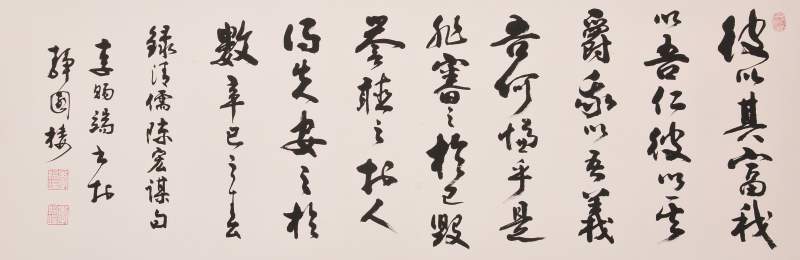 彼以其富我
以吾仁彼以其
爵我以吾義
吾何慊乎是
非審之於己毀
譽聽之於人
得失安之於
數辛巳之春
錄清儒陳宏謀句
李端書於
靜園樓